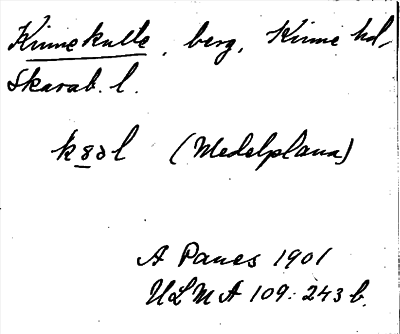 Kinnekulle, berg, Kinne hd,
Skarab. l.
(Medelplana)
A Panes 1901
ULMA 109: 243 b.